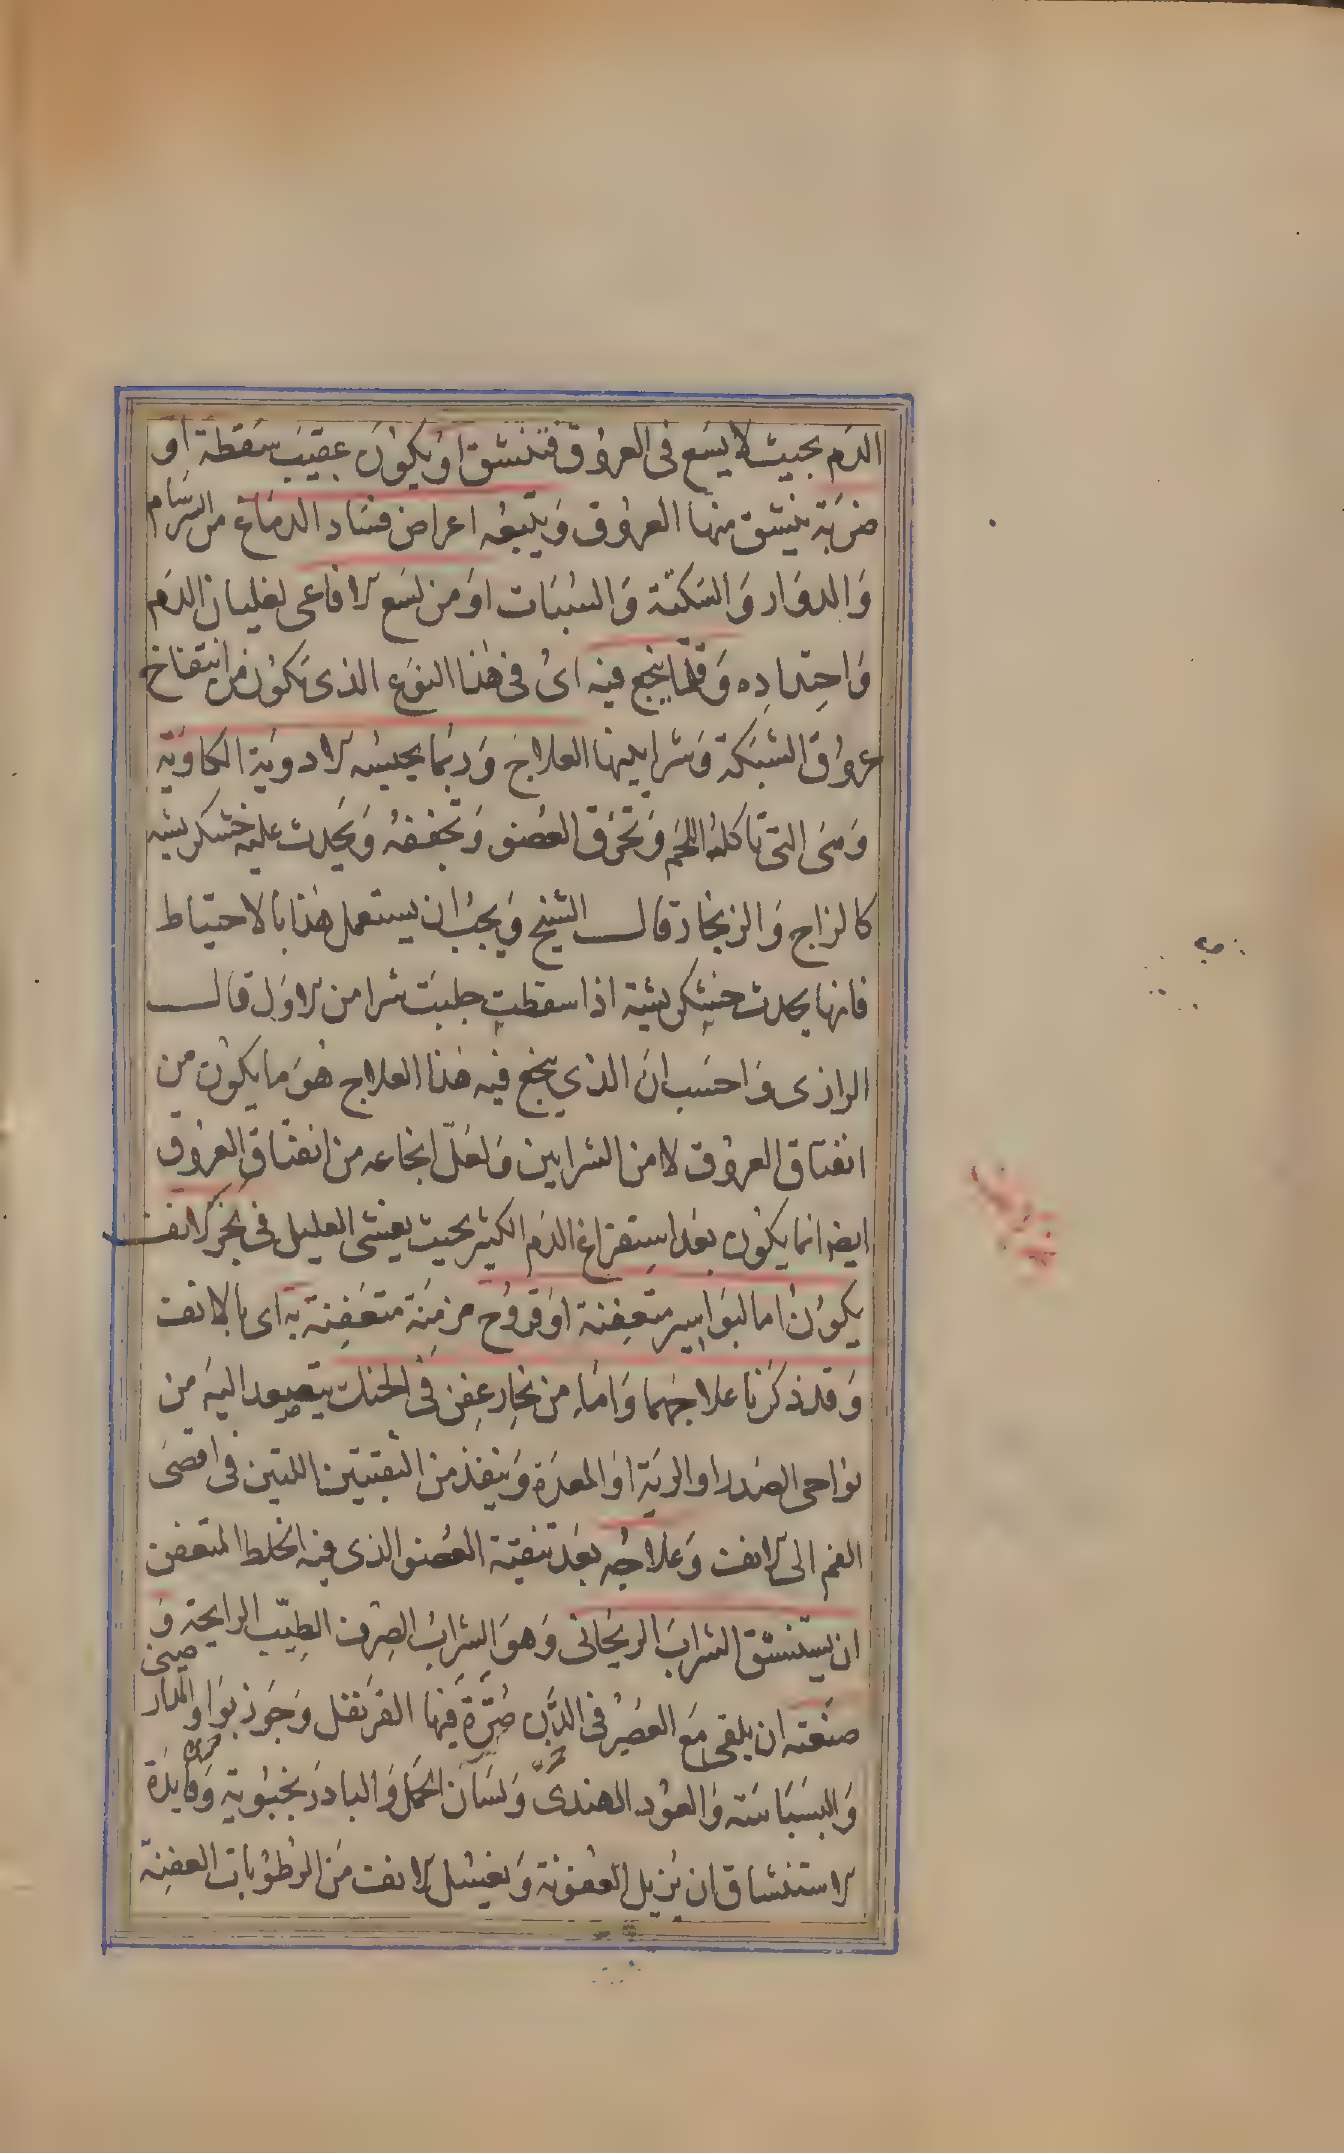 الدم بحيث لا يسع فى العروق فتنشق او يكون عقيب سقطة او
ضربة ينشق منها العروق و يتبعه اعراض فساد الدماغ من السرسام
و الدوار و السكتة و السبات او من لسع الافاعى لغليان الدم
و احتداده و قلما ينجع فيه اى فى هذا النوع الذى يكون من انتفاخ
عروق الشبكة و شرايينها العلاج و ربما يحبسه الادوية الكاوية
و هى التى تاكل اللحم و تحرق العضو و تجففه و يحدث عليه خشكريشه
كالزاج و الزنجار قال الشيخ و يجب ان يستعمل هذا بالاحتياط
فانها يحدث خشكريشية اذا سقطت جلبت شرا من الاول قال
الرازى و احسب ان الذي ينجع فيه هذا العلاج هو ما يكون من
انفتاق العروق لا من الشرايين و لعل انجاعه من انفتاق العروق
ايضا انما يكون بعد استفراغ الدم الكثير بحيث يغشى العليل فى بخر الانف
يكون اما لبواسير متعفنة او قروح مزمنة متعفنة به اى بالانف
و قد ذكرنا علاجهما و اما من بخار عفن فى الحنك يتصعد اليه من
نواحى الصدر او الرية او المعدة و ينفذ من الثقبتين اللتين فى اقصى
الفم الى الانف و علاجه بعد تنقية العضو الذى فيه الخلط المتعفن
ان يستنشق الشراب الريحانى و هو الشراب الصرف الطيب الرايحة و
صنعته ان يلقى مع العصير فى الدن صرة فيها القرنفل و جوز بوا و الدار صينى
و البسباسة و العود الهندى و لسان الحمل و البادرنجبوية و فايدة
الاستنشاق ان يزيل العفونة و يغسل الانف من الرطوبات العفنة